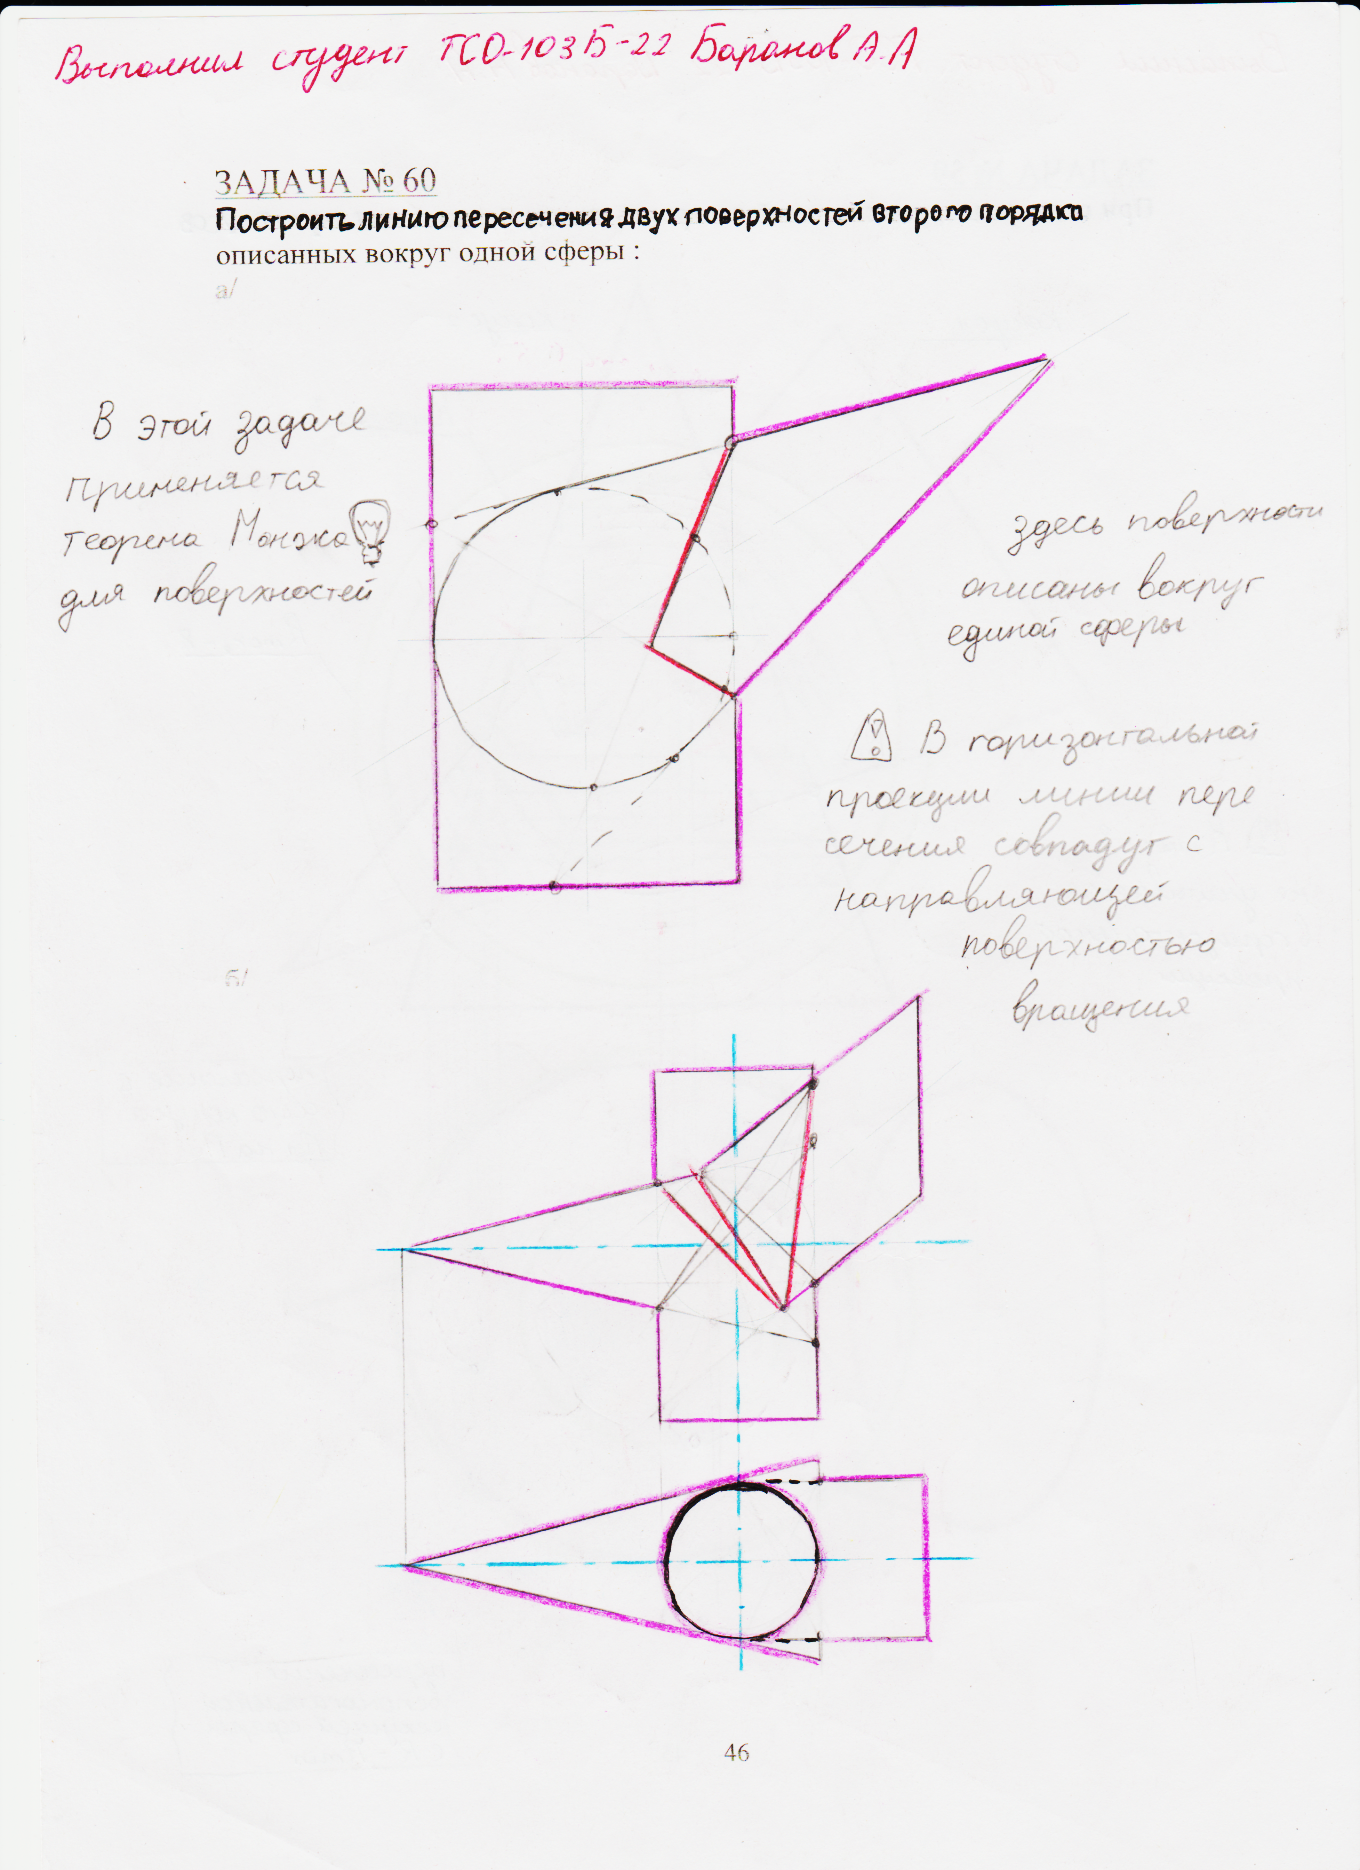 Выполнил студент ТСО-103Б-22 Баранов А.А
ЗАДАЧА № 60
Построить линию пересечения двух поверхностей второго порядка
описанных вокруг одной сферы :
а/
В этой задаче
применяется
теорема Монжа
для поверхностей
здесь поверхности
описаны вокруг
единой сферы
! В горизонтальной
проекции линии пере
сечения совпадут с
направляющей
поверхностью
вращения
б/
46